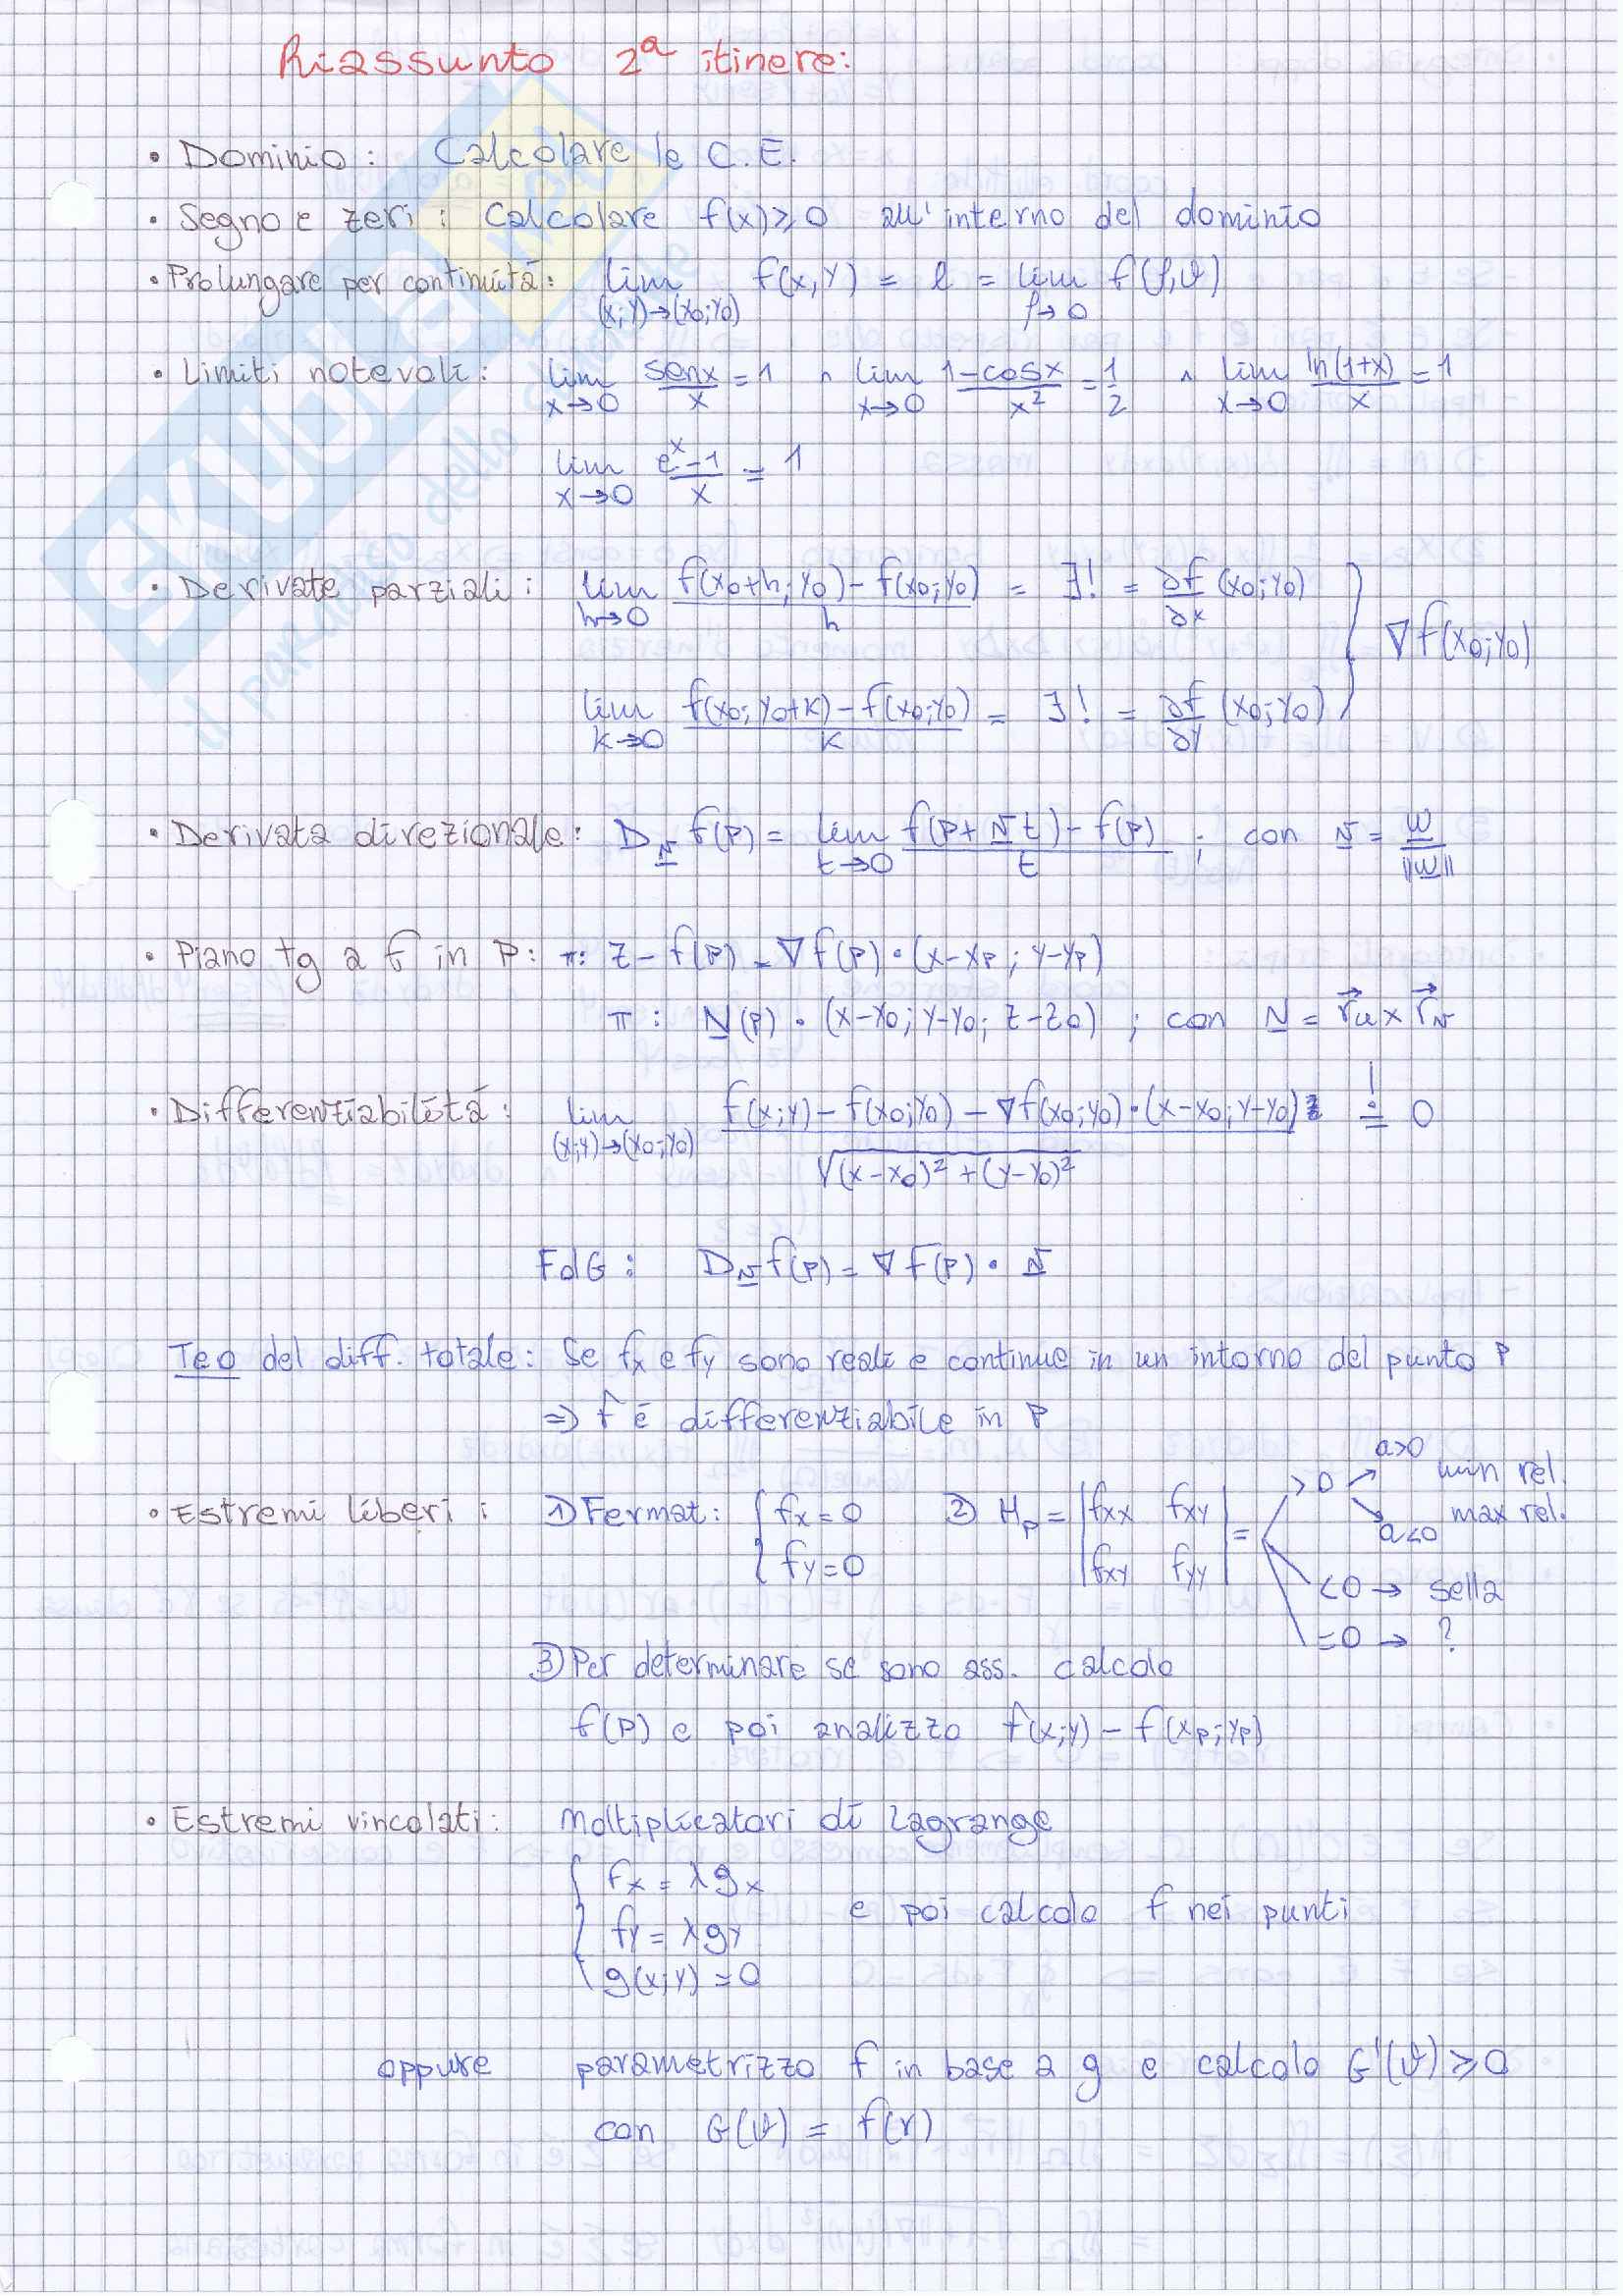 Riassunto 2ª itinere:
• Dominio: Calcolare le C.E.
• Segno e zeri: Calcolare f(x)⩾0 all'interno del dominio
• Prolungare per continuità: lim (x;y)→(x0;y0) f(x,y) = l = lim ρ→0 f(ρ,ϑ)
• Limiti notevoli: lim x→0 senx/x = 1 ∧ lim x→0 1-cosx/x² = 1/2 ∧ lim x→0 ln(1+x)/x = 1
lim x→0 eˣ-1/x = 1
• Derivate parziali: lim h→0 f(x0+h;y0)-f(x0;y0)/h = ∃! = ∂f/∂x (x0;y0)
∇f(x0;y0)
lim k→0 f(x0;y0+k)-f(x0;y0)/k = ∃! = ∂f/∂y (x0;y0)
• Derivata direzionale: D_v f(P) = lim t→0 f(P+vt)-f(P)/t ; con v = w/||w||
• Piano tg a f in P: π: z-f(P) = ∇f(P)•(x-xp; y-yp)
π: N(P)•(x-x0; y-y0; z-z0) ; con N = r⃗u × r⃗v
• Differenziabilità: lim (x;y)→(x0;y0) f(x;y)-f(x0;y0)-∇f(x0;y0)•(x-x0;y-y0)/√(x-x0)²+(y-y0)² =! 0
FdG: D_v f(P) = ∇f(P)•v
Teo del diff. totale: Se fx e fy sono reali e continue in un intorno del punto P
⇒ f è differenziabile in P
• Estremi liberi: 1) Fermat: { fx=0 fy=0 2) Hp = |fxx fxy fxy fyy| = >0 a>0 min rel.
a<0 max rel.
<0 → sella
=0 → ?
3) Per determinare se sono ass. calcolo
f(P) e poi analizzo f(x;y) - f(xp;yp)
• Estremi vincolati: Moltiplicatori di Lagrange
fx = λgx
fy = λgy
g(x;y) = 0
e poi calcolo f nei punti
oppure parametrizzo f in base a g e calcolo G'(ϑ) ⩾ 0
con G(ϑ) = f(r)
SKUOLA.net
il paradiso dello studente